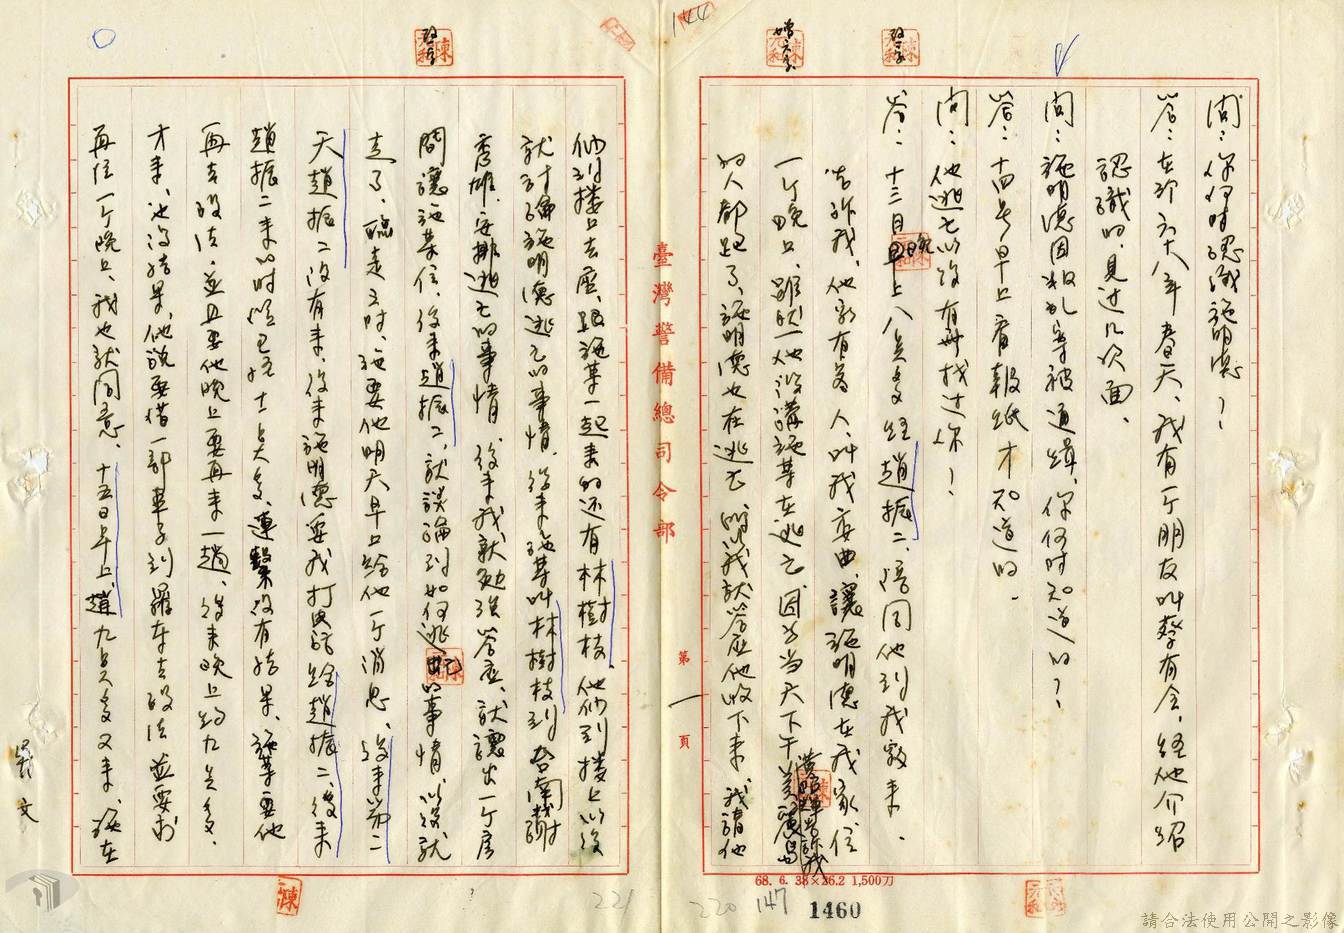 144
問：你何時認識施明德？
答：在於六十八年春天，我有一个朋友叫蔡有全，經他介紹
認識的，見过几次面、
問：施明德因叛乱案被通緝，你何时知道的？
答：十四号早上看報紙才知道的．
問：他逃亡以後有無找过你？
答：十三日晚上八点多經趙振二、陪同他到我教來．
告訴我，他家有客人，叫我委曲，讓施明德在我家住
一个晚上，雖然他沒講施某在逃亡，因为当天下午美麗島
黃昭輝告訴我
的人都跑了、施明德也在逃亡，所以我就答应他收下来，我請他
第一頁
臺灣警備總司令部
68. 6. 38×26.2 1,500刀
220
147
1460
他到樓上去座，跟施某一起来的还有林樹枝，他們到樓上以後
就討論施明德逃亡的事情，後来施某叫林樹枝到台南謝
秀雄，安排逃亡的事情，後来我就勉強答应，就讓出一个房
間讓施某住，後来趙振二，就談論到如何逃亡的事情，以後就
走了，臨走之时，施要他明天早上給他一个消息，後来第二
天趙振二沒有来，後来施明德要我打电話給趙振二，後来
趙振二来的时候已經十一点多，連繫沒有結果，施某要他
再去設法，並且要他晚上要再来一趟，後来晚上約九点多，
才来，也沒結果，他說要借一部車子到羅东去設法並要求
再住一个晚上、我也就同意、十五日早上，趙九点多又来，施在
221
請合法使用公開之影像